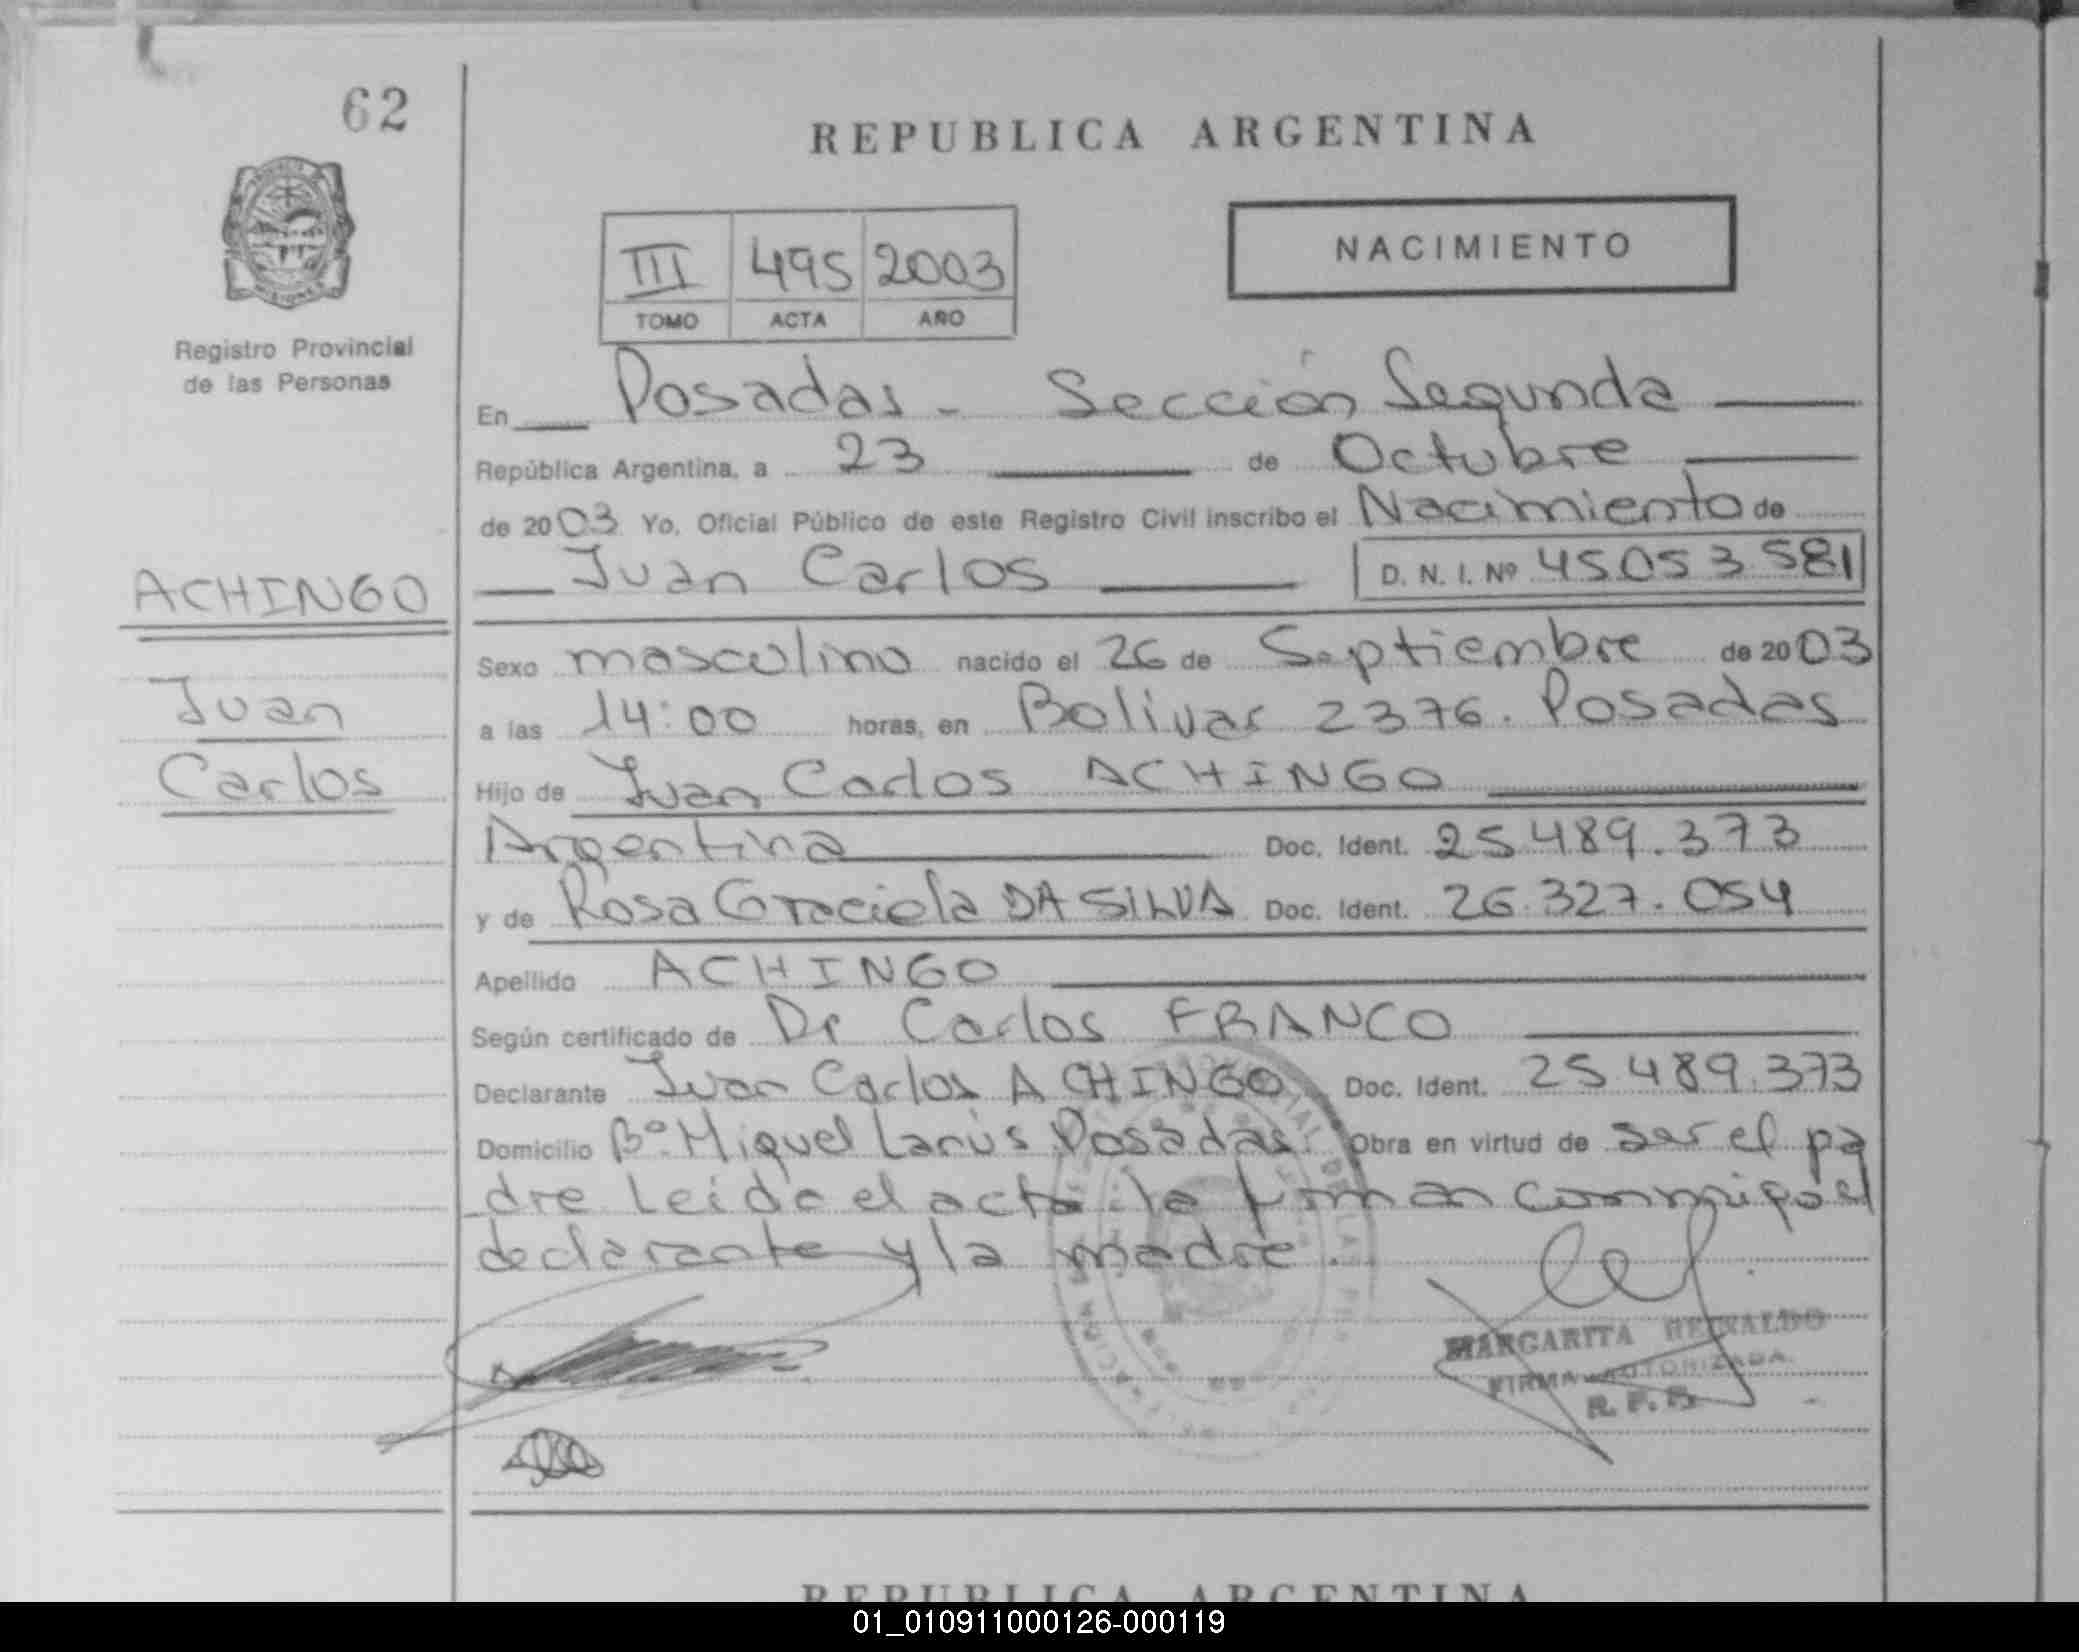 62
REPUBLICA ARGENTINA
NACIMIENTO
III 495 2003
TOMO ACTA AÑO
Registro Provincial
de las Personas
MISIONES
En Posadas - Sección Segunda
República Argentina, a 23 de Octubre
de 2003 Yo, Oficial Público de este Registro Civil inscribo el Nacimiento de
Juan Carlos D. N. I. Nº 45.053.581
ACHINGO
Juan
Carlos
Sexo masculino nacido el 26 de Septiembre de 2003
a las 14:00 horas, en Bolivar 2376. Posadas
Hijo de Juan Carlos ACHINGO
Argentina Doc. Ident. 25.489.373
y de Rosa Graciela DA SILVA Doc. Ident. 26.327.054
Apellido ACHINGO
Según certificado de Dr Carlos FRANCO
Declarante Juan Carlos ACHINGO Doc. Ident. 25.489.373
Domicilio Bº Miguel Lanús Posadas. Obra en virtud de ser el pa
dre Leida el acta la firman conmigo el
declarante y la madre.
MARGARITA REINALDO
FIRMA AUTORIZADA
R. P. P.
REPUBLICA ARGENTINA
01_010911000126-000119